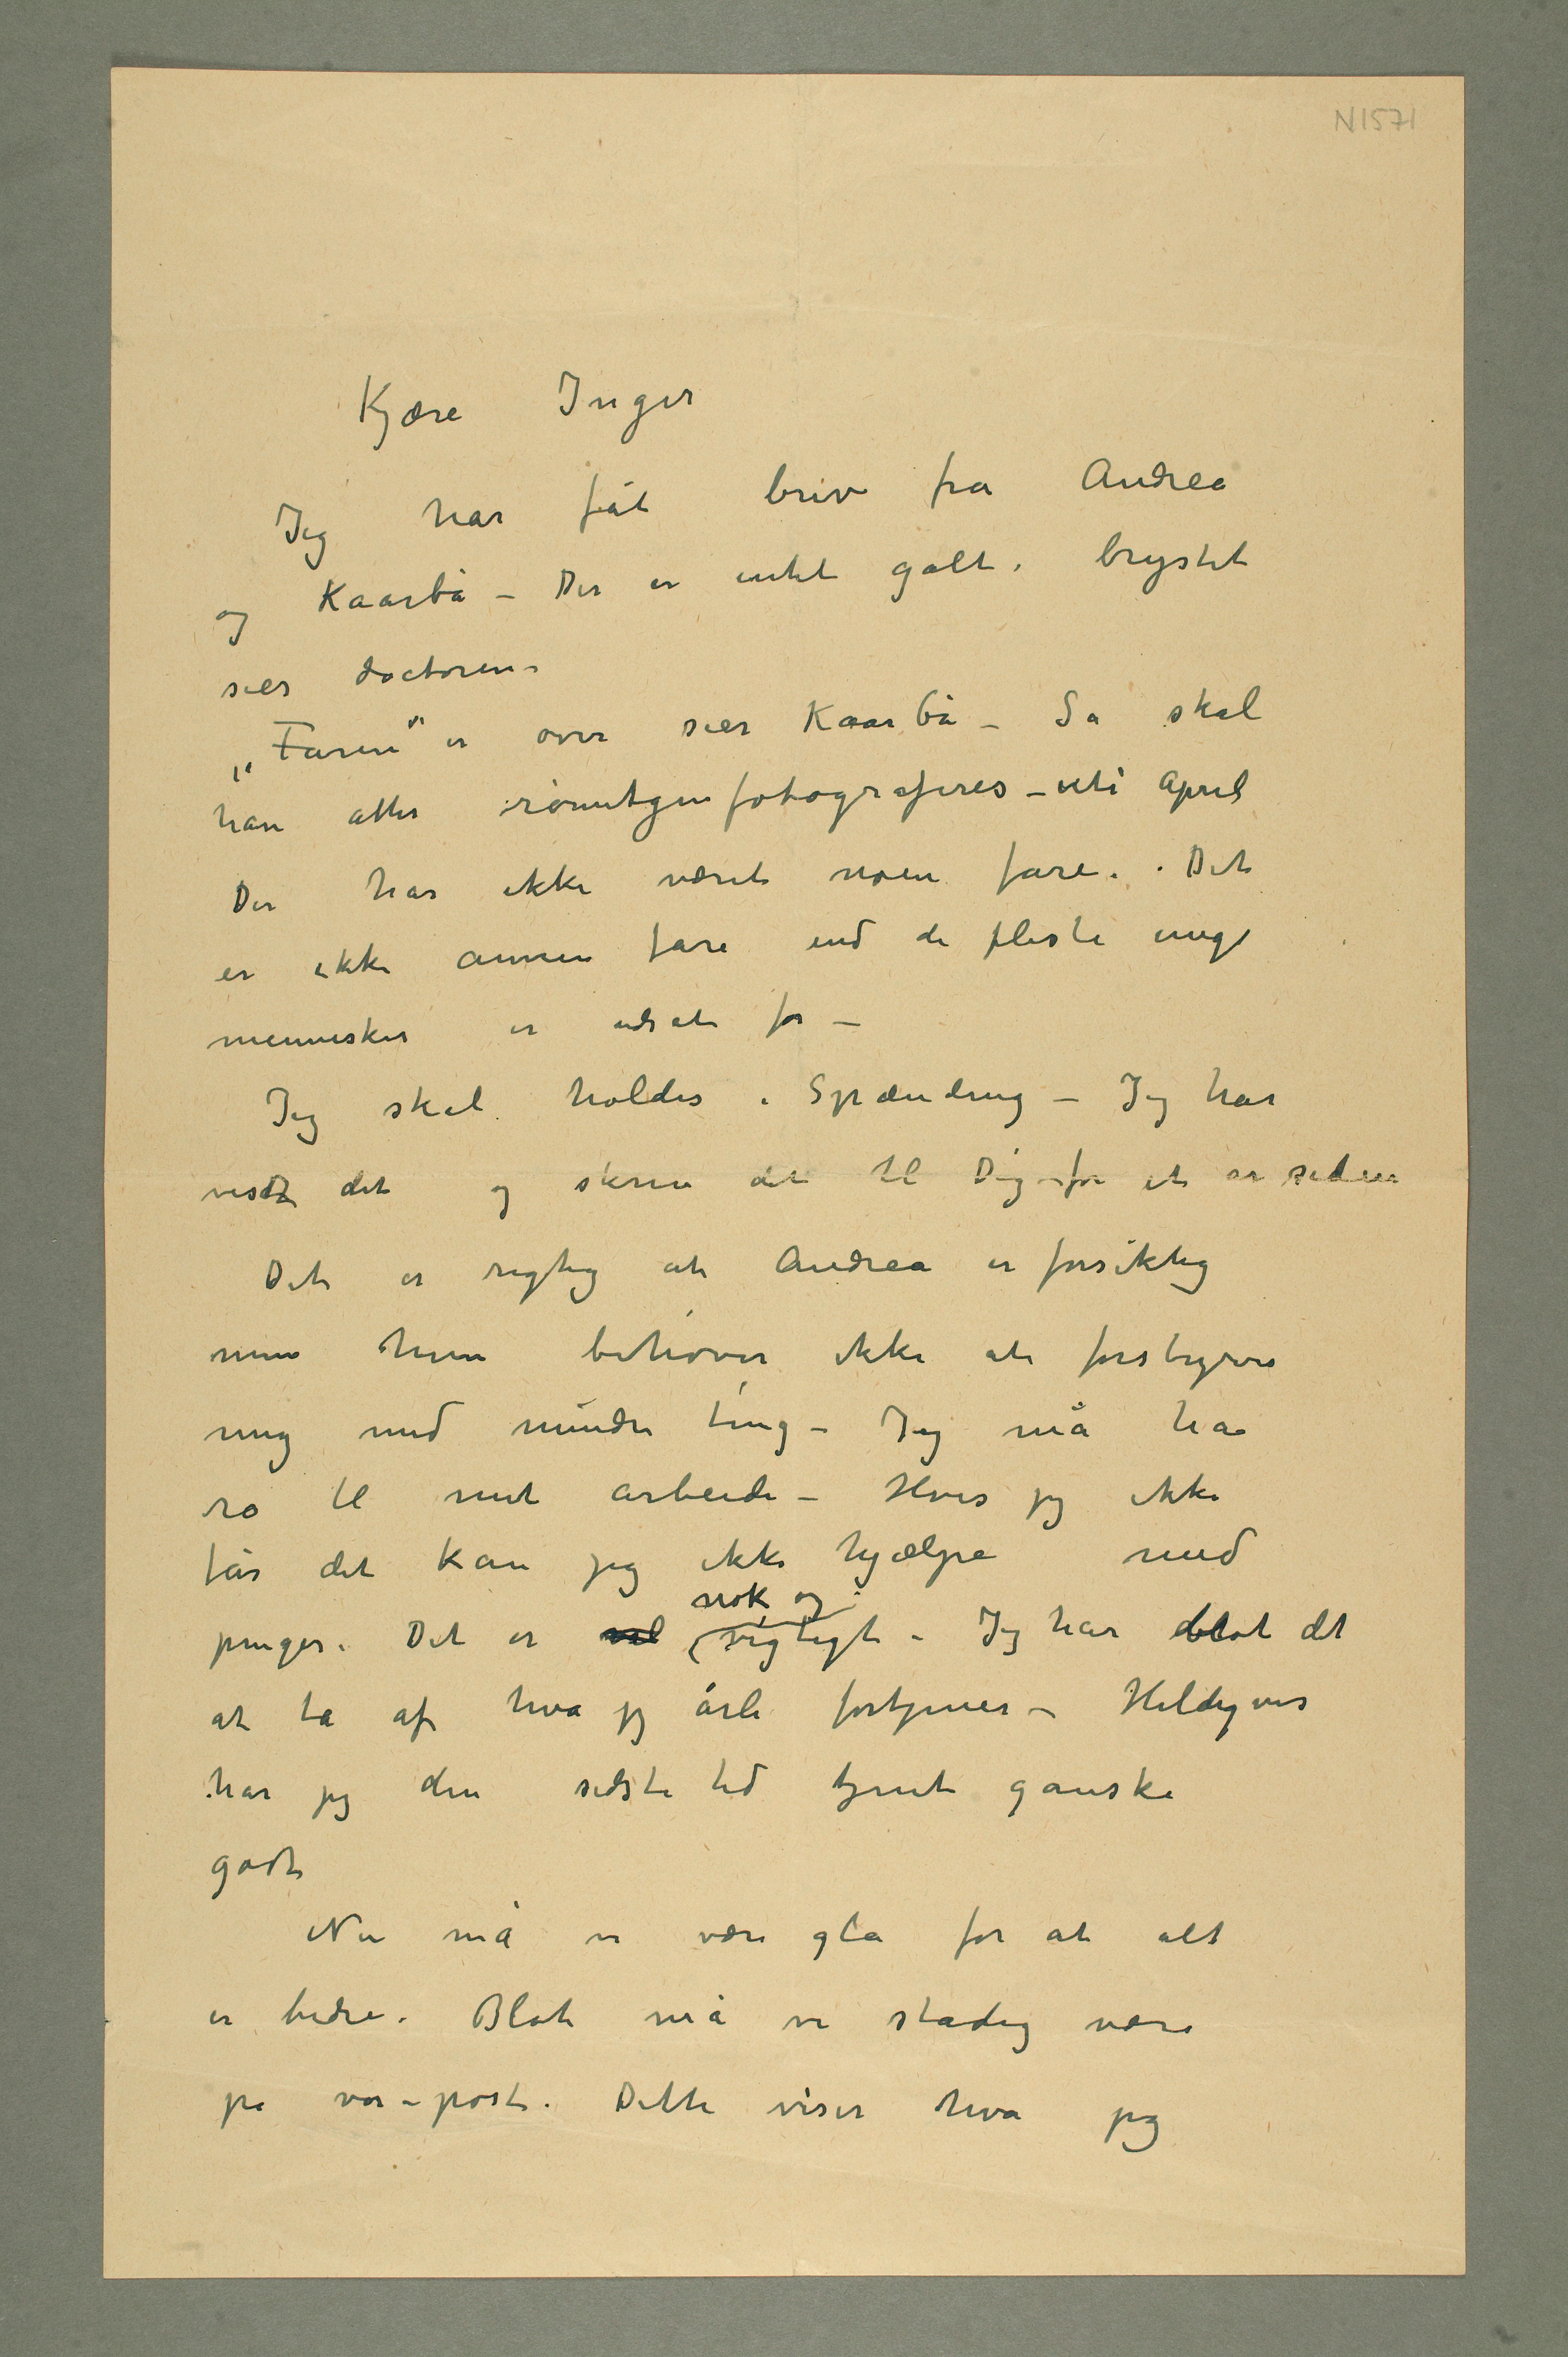 N1571
Kjære Inger
Jeg har fåt brev fra Andrea
og Kaarbå – Der er intet galt i brystet
sier doctoren.
„Faren" er over sier Kaarbå – Så skal
han atter røntgenfotograferes – uti April
Der har ikke været noen fare. Det
er ikke annen fare end de fleste unge
mennesker er udsat for –
Jeg skal holdes i Spænding – Jeg har
vist det og skrev det til Dig for et år siden
Det er rigtig at Andrea er forsiktig
men hun behøver ikke at forstyrre
mig med mindre ting – Jeg må ha
ro til mit arbeide – Hvis jeg ikke
får det kan jeg ikke hjælpe med
nok og
penger. Det er vel vigtigt – Jeg har blot dt
at ta af hva jeg årli fortjener – Heldigvis
har jeg den sidste tid tjent ganske
godt
Nu må vi være gla for at alt
er bedre. Blot må vi stadig være
på vor post. Dette viser hva jeg